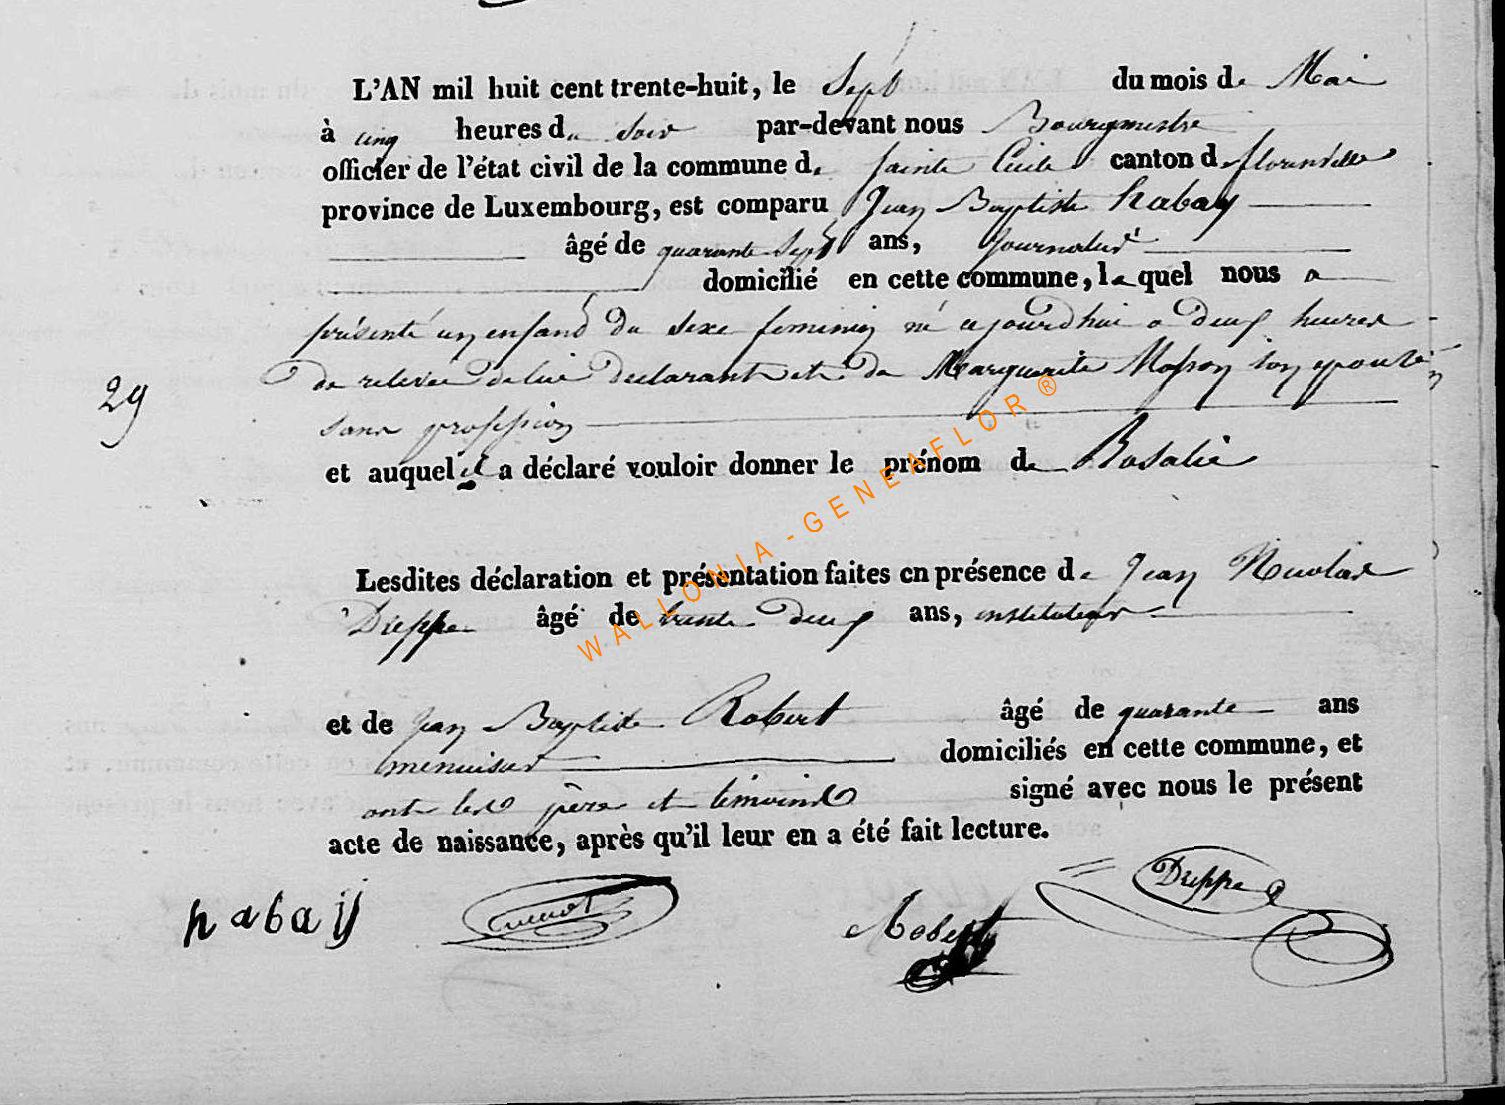 L'AN mil huit cent trente-huit, le Sept du mois de Mai
à cinq heures du soir par-devant nous Bourgmestre
officier de l'état civil de la commune de Sainte Cécile canton de florenville
province de Luxembourg, est comparu Jean Baptiste habay
âgé de quarante Sept ans, journalier
domicilié en cette commune, lequel nous a
présenté un enfant du sexe feminin né aujourd'hui a deux heures
de relevée de lui declarant et de Marguerite Masson son epouse
29
sans profession
et auquel il a déclaré vouloir donner le prénom de Rosalie
Lesdites déclaration et présentation faites en présence de Jean Nicolas
Dieppe âgé de trente deux ans, instituteur
et de Jean Baptiste Robert âgé de quarante ans
menuisier domiciliés en cette commune, et
ont les père et témoins signé avec nous le présent
acte de naissance, après qu'il leur en a été fait lecture.
habaij Robert Dieppe
WALLONIA - GENEAFLOR ®